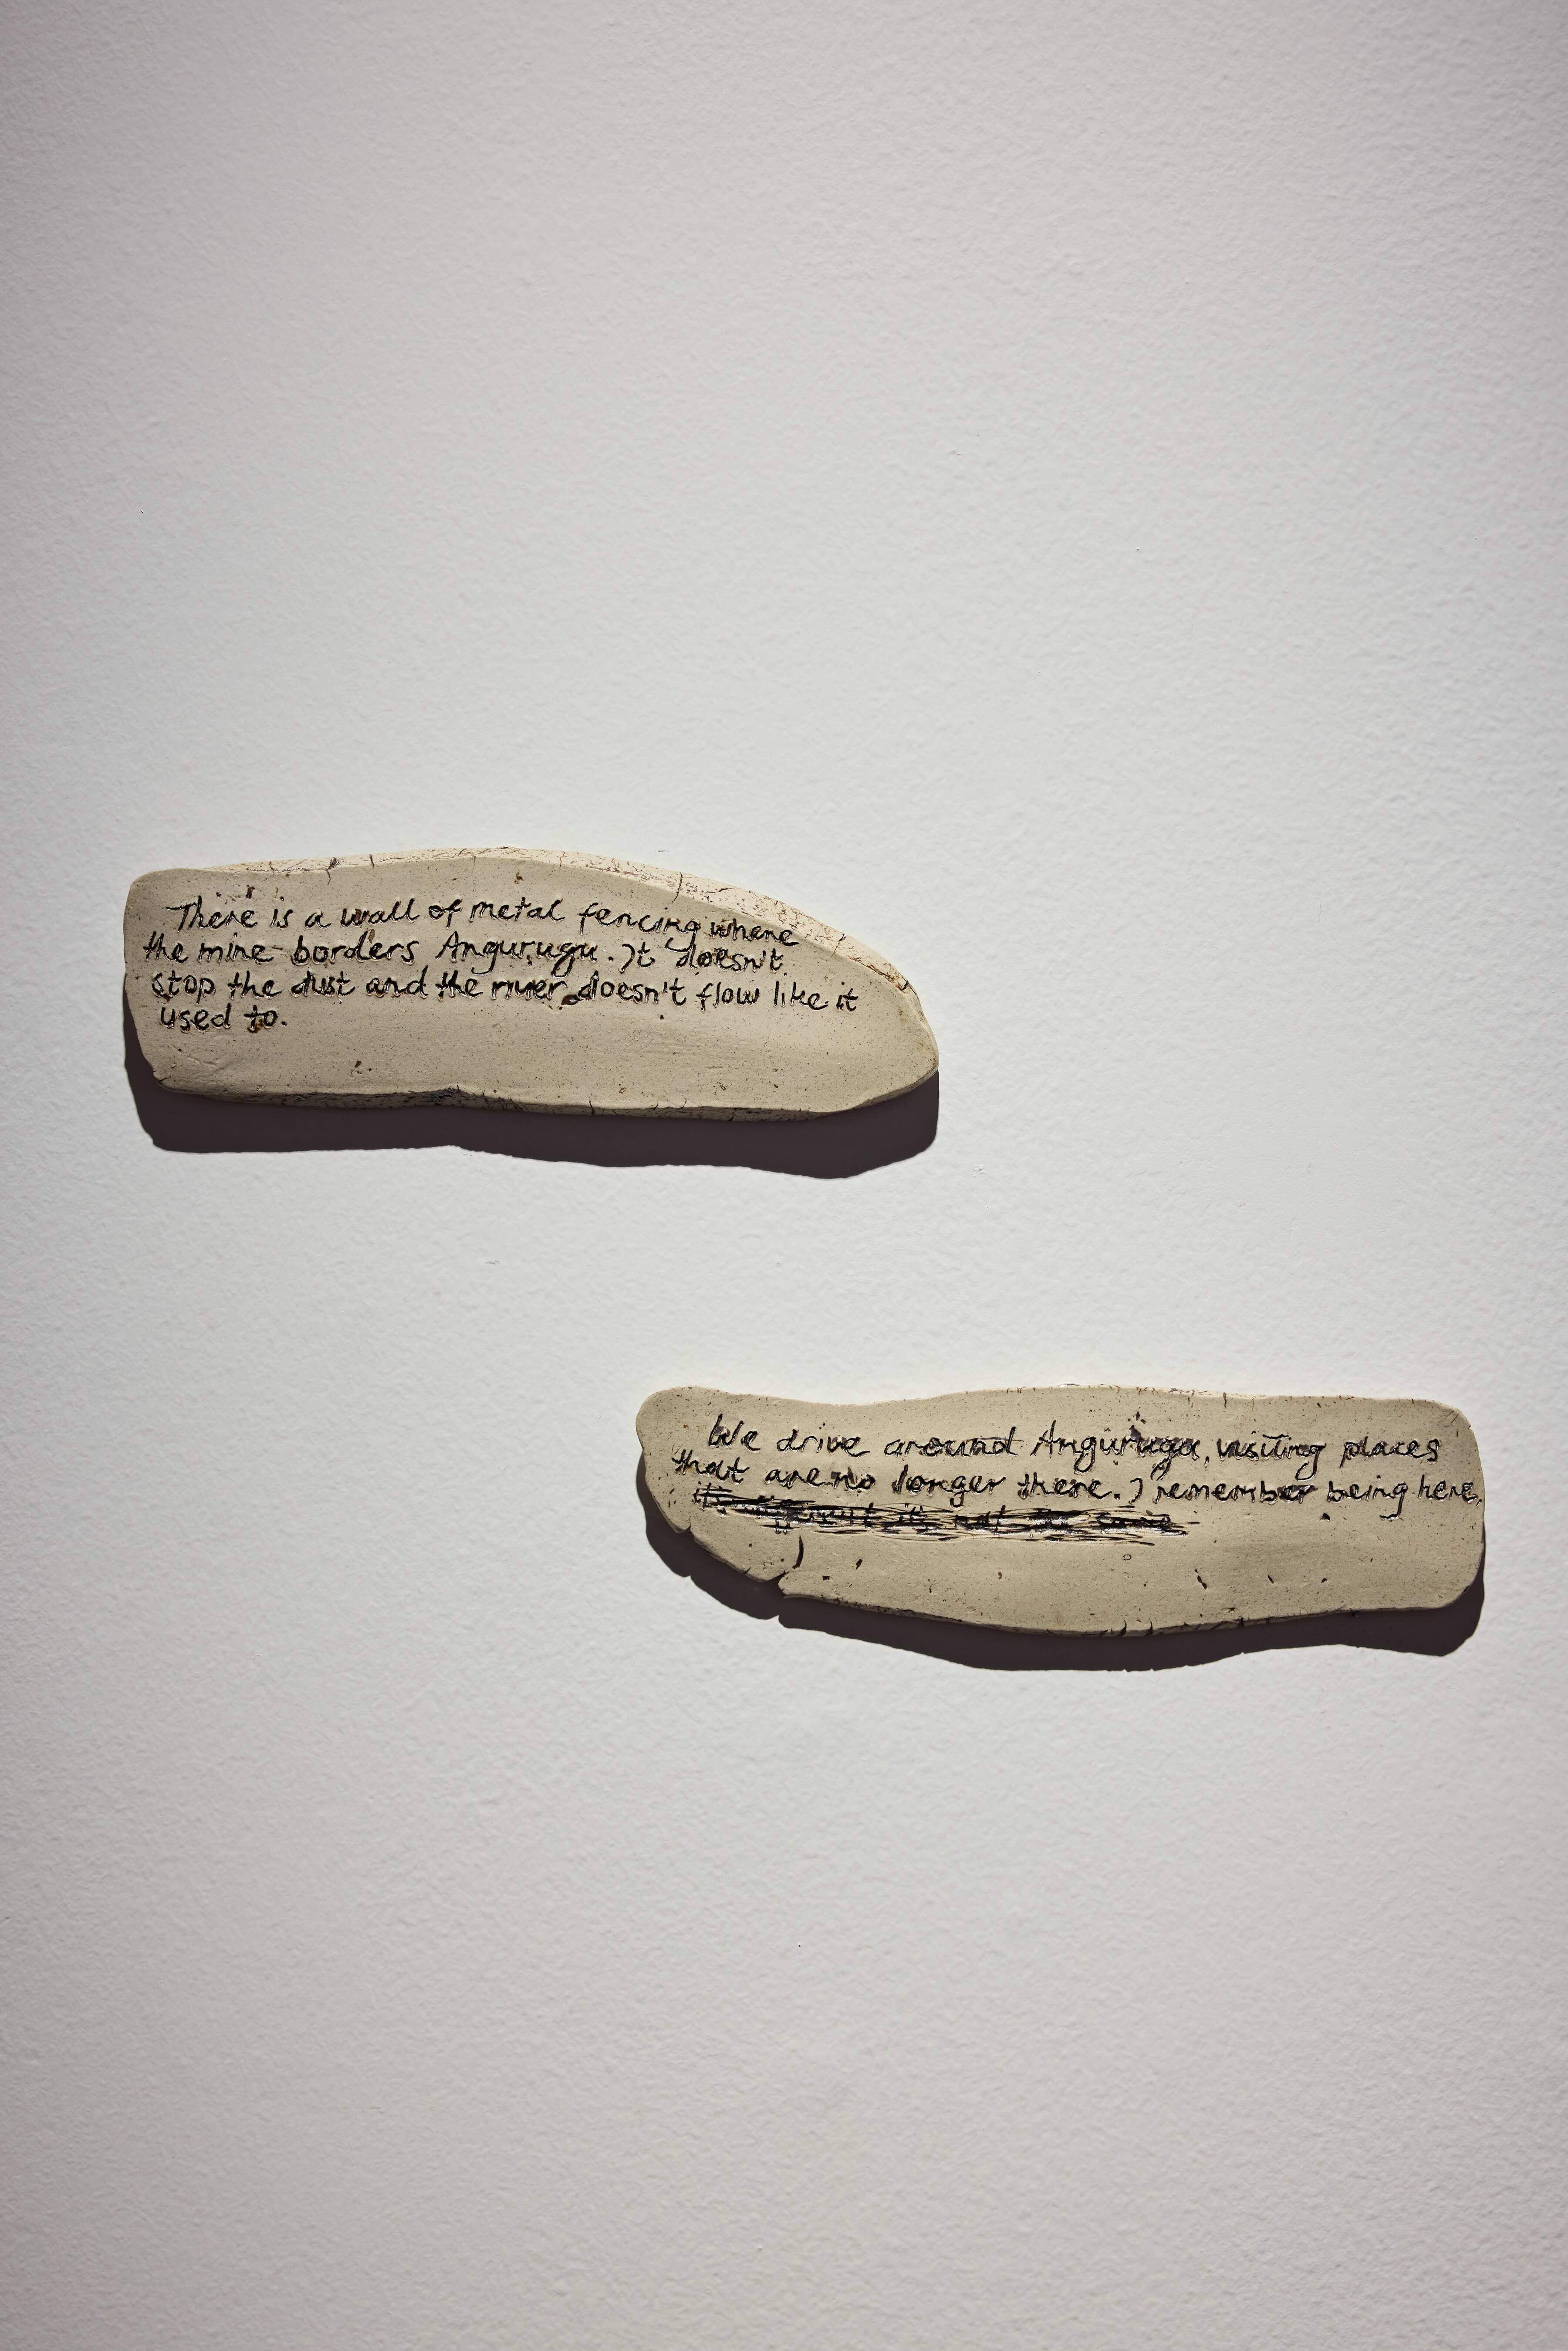 There is a wall of metal fencing where
the mine borders Angurugu. It doesn't
stop the dust and the river doesn't flow like it
used to.
We drive around Angurugu, visiting places
that are no longer there. I remember being here.
it's not the same